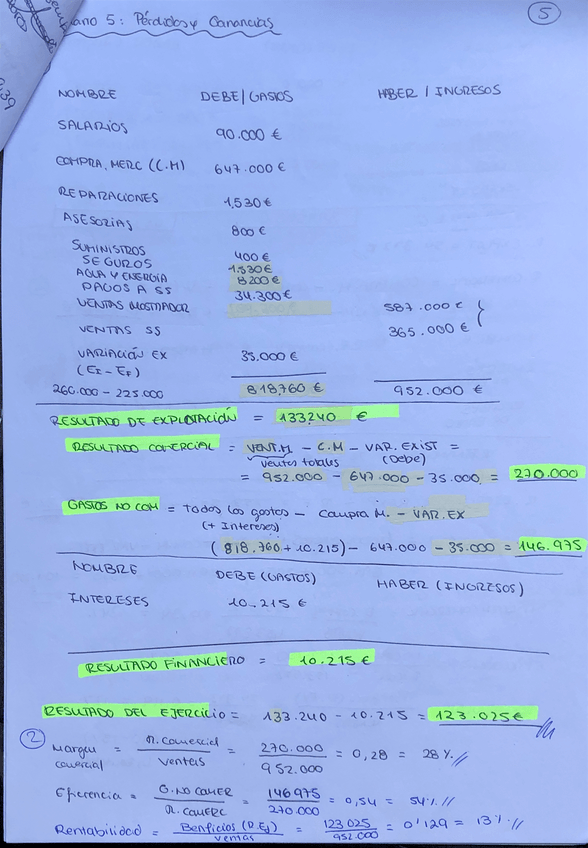 5
ano 5: Pérdidas y Ganancias
0,39
NOMBRE DEBE/GASTOS HABER / INGRESOS
SALARIOS 90.000 €
COMPRA, MERC (C.M) 647.000 €
REPARACIONES 1,530 €
ASESORIAS 800 €
SUMINISTROS 400 €
SEGUROS 1.530 €
AGUA Y ENERGÍA 8200 €
PAGOS A SS 34.300 €
VENTAS MOSTRADOR 587.000 €
VENTAS SS 365.000 €
VARIACIÓN EX 35.000 €
(EI - EF)
260.000 - 225.000 818,760 € 952.000 €
RESULTADO DE EXPLOTACIÓN = 133240 €
RESULTADO COMERCIAL = VENT.M - C.M - VAR. EXIST =
ventas totales (Debe)
= 952.000 - 647.000 - 35.000 = 270.000
GASTOS NO COM = Todos los gastos - Compra M. - VAR.EX
(+ Intereses)
(818.760 + 10.215) - 647.000 - 35.000 = 146.975
NOMBRE DEBE (GASTOS) HABER (INGRESOS)
INTERESES 10.215 €
RESULTADO FINANCIERO = 10.215 €
RESULTADO DEL EJERCICIO = 133.240 - 10.215 = 123.025 €
2 Margen comercial = R. Comercial / ventas = 270.000 / 952.000 = 0,28 = 28 % //
Eficiencia = G. NO COMER / R. COMERC = 146975 / 270.000 = 0,54 = 54% //
Rentabilidad = Benficios (R.Ej) / ventas = 123025 / 952.000 = 0'129 = 13% //